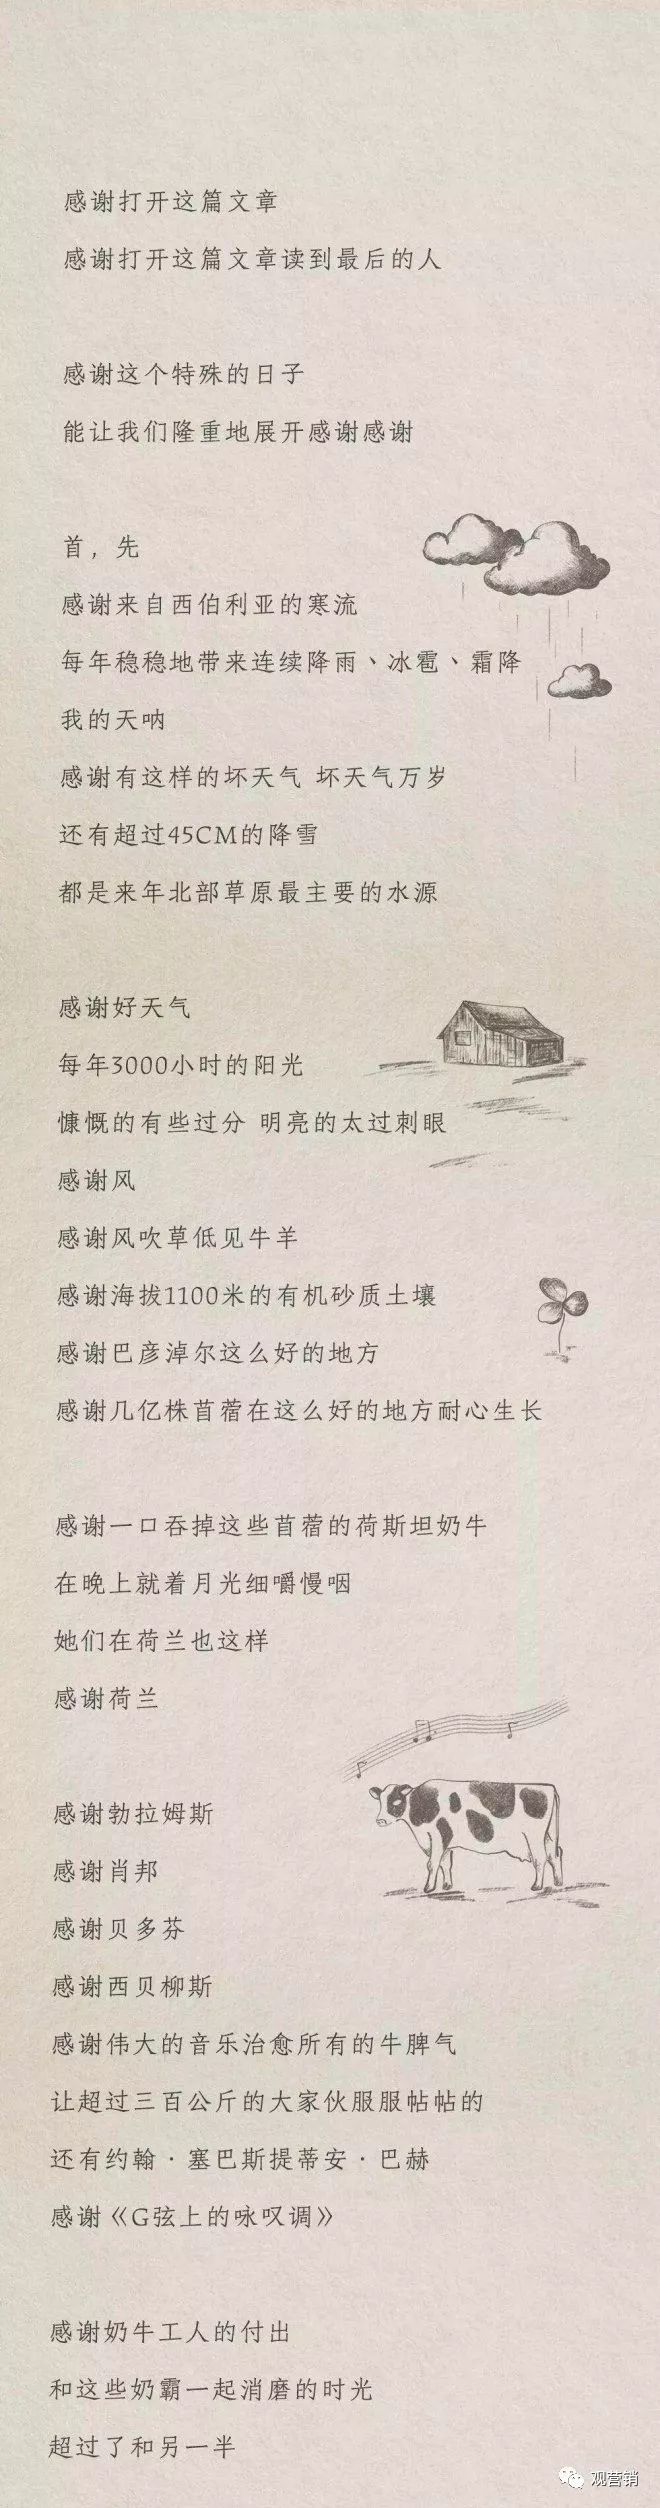 感谢打开这篇文章
感谢打开这篇文章读到最后的人
感谢这个特殊的日子
能让我们隆重地展开感谢感谢
首，先
感谢来自西伯利亚的寒流
每年稳稳地带来连续降雨、冰雹、霜降
我的天呐
感谢有这样的坏天气 坏天气万岁
还有超过45CM的降雪
都是来年北部草原最主要的水源
感谢好天气
每年3000小时的阳光
慷慨的有些过分 明亮的太过刺眼
感谢风
感谢风吹草低见牛羊
感谢海拔1100米的有机砂质土壤
感谢巴彦淖尔这么好的地方
感谢几亿株苜蓿在这么好的地方耐心生长
感谢一口吞掉这些苜蓿的荷斯坦奶牛
在晚上就着月光细嚼慢咽
她们在荷兰也这样
感谢荷兰
感谢勃拉姆斯
感谢肖邦
感谢贝多芬
感谢西贝柳斯
感谢伟大的音乐治愈所有的牛脾气
让超过三百公斤的大家伙服服帖帖的
还有约翰·塞巴斯提蒂安·巴赫
感谢《G弦上的咏叹调》
感谢奶牛工人的付出
和这些奶霸一起消磨的时光
超过了和另一半
观营销